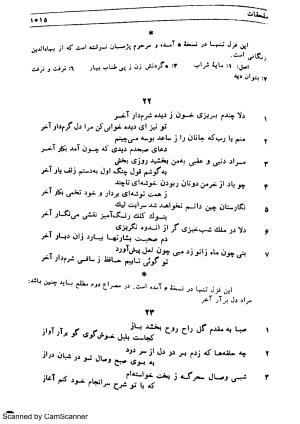 ملحقات
۱۰۱۵
*
این غزل تنها در نسخهٔ * آمده و مرحوم پژمان نوشته است که از بهاءالدین
زنگانی است.
۱: مایهٔ شراب ۳: * گردنش زن ز پی طناب بیار ۶: نرفت و نرفت
۷: بتوان دید
۲۲
۱ دلا چندم بریزی خون ز دیده شرم‌دار آخر
تو نیز ای دیده خوابی کن مراد دل گرم‌دار آخر
۲ منم یا رب که جانان را ز ساعد بوسه می‌چینم
دعای صبحدم دیدی که چون آمد بکار آخر
۳ مراد دنیی و عقبی به‌من بخشید روزی بخش
به گوشم قول چنگ اول به‌دستم زلف یار آخر
۴ چو باد از خرمن دونان ربودن خوشه‌ای تا چند
ز همت توشه‌ای بردار و خود تخمی بکار آخر
۵ نگارستان چین دانم نخواهد شد سرایت لیک
بنوک کلک رنگ‌آمیز نقشی می‌نگار آخر
۶ دلا در ملک شب‌خیزی گر از اندوه نگریزی
دم صبحت بشارتها بیارد زان دیار آخر
۷ بتی چون ماه زانو زد میی چون لعل پیش‌آورد
تو گوئی تایبم حافظ ز ساقی شرم‌دار آخر
*
این غزل تنها در نسخهٔ * آمده است. در مصراع دوم مطلع بباید چنین باشد:
مراد دل برآر آخر
۲۳
۱ صبا به مقدم گل راح روح بخشد باز
کجاست بلبل خوش‌گوی گو برآر آواز
۲ چه حلقه‌ها که زدم بر در دل از سر سوز
به بوی صبح وصال تو در شبان دراز
۳ شبی وصال سحرگه ز بخت خواسته‌ام
که با تو شرح سرانجام خود کنم آغاز
Scanned by CamScanner